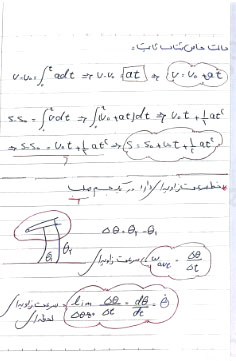 حالت خاص شتاب ثابت:
v-v₀ = ∫₀ᵗ adt ⇒ v-v₀ = at ⇒ v = v₀ + at
s-s₀ = ∫₀ᵗ vdt ⇒ ∫₀ᵗ (v₀+at)dt ⇒ v₀t + ½at²
⇒ s-s₀ = v₀t + ½at² ⇒ s = s₀ + v₀t + ½at²
سرعت زاویه‌ای
θ₁ θ₂ Δθ = θ₂ - θ₁
سرعت زاویه‌ای ω ave = Δθ/Δt
سرعت زاویه‌ای لحظه‌ای = lim Δθ/Δt = dθ/dt = θ̇